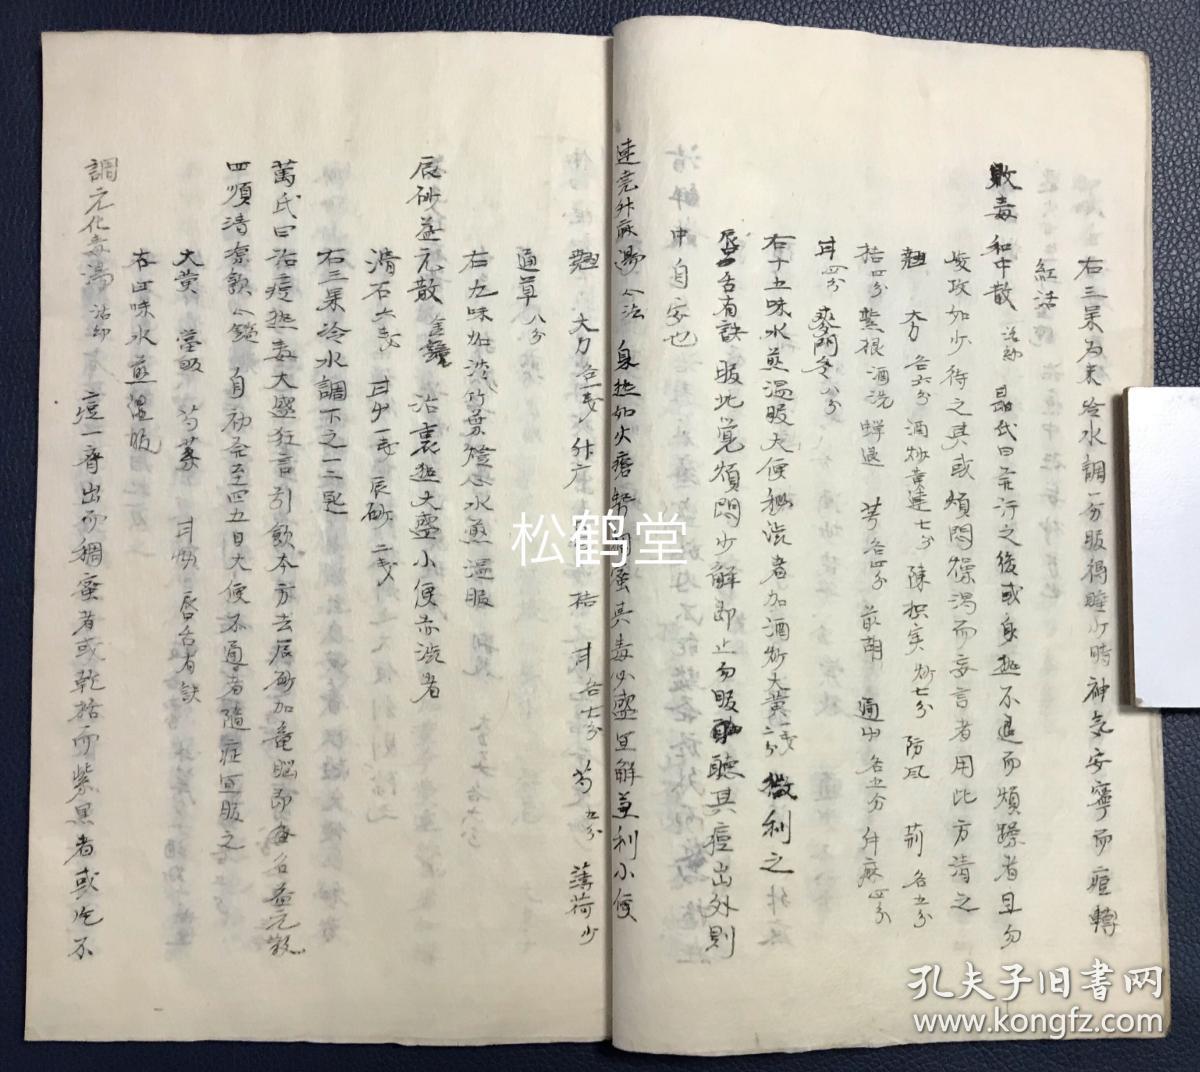 右三味為末冷水調一分服得睡少時神气安寧而痘轉
紅活
敗毒和中散 活幼 聶氏曰發汗之後或身熱不退而煩躁者且勿
峻攻如少待之其或煩悶燥渴而妄言者用此方清之
翹 各六分 酒炒黃連七分 陳枳实炒七分 防风 荊各五分
桔四分 紫根酒洗 蟬退 芎各四分 前胡 通 各五分 升麻四分
甘四分 麥門冬八分
右十五味水煎温服大便秘澁者加酒炒大黃二戋二分微利之
舌有訣 服此覚煩悶少解即止勿服聽其痘出外則
清解散中自字也
連壳升麻湯 仝法 身熱如火瘡 稠蜜其毒必盛宜解並利小便
翹 大力各一戋 升 桔 甘各七分 芍五分 薄荷少
通草八分
右九味加淡竹葉燈心水煎温服
辰砂益元散 全 治裏熱大盛小便赤澁者
滑石六戋 甘 一戋 辰砂二戋
右三味冷水調下之一二匙
萬氏曰治痘熱毒大盛狂言引飲本方去辰砂加竜脳 名益元散
四順清凉飲 仝 自初發至四五日大便不通者随症宜服之
大黃 當皈 芍 甘 唇舌有訣
右四味水煎温服
調元化毒湯 活幼 痘一齊出而稠蜜者或乾枯而紫黑者或吃不
松鹤堂
孔夫子旧书网
www.kongfz.com